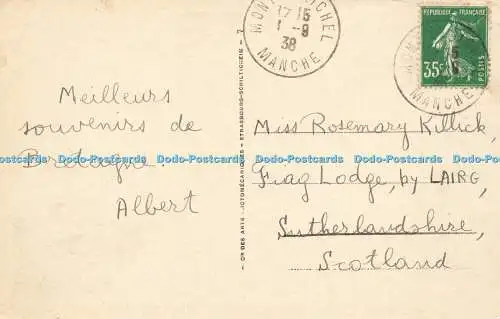 MONT ST MICHEL
17 15
1 -9
38
MANCHE
REPUBLIQUE FRANÇAISE
35c
POSTES
MANCHE
Meilleurs
souvenirs de
Bretagne.
Albert
Miss Rosemary Killick,
Fiag Lodge, by LAIRG,
Sutherlandshire,
Scotland
Dodo-Postcards Dodo-Postcards Dodo-Postcards Dodo-Postcards Dodo-Postcards Dodo-Postcards
STRASBOURG-SCHILTIGHEIM - 7